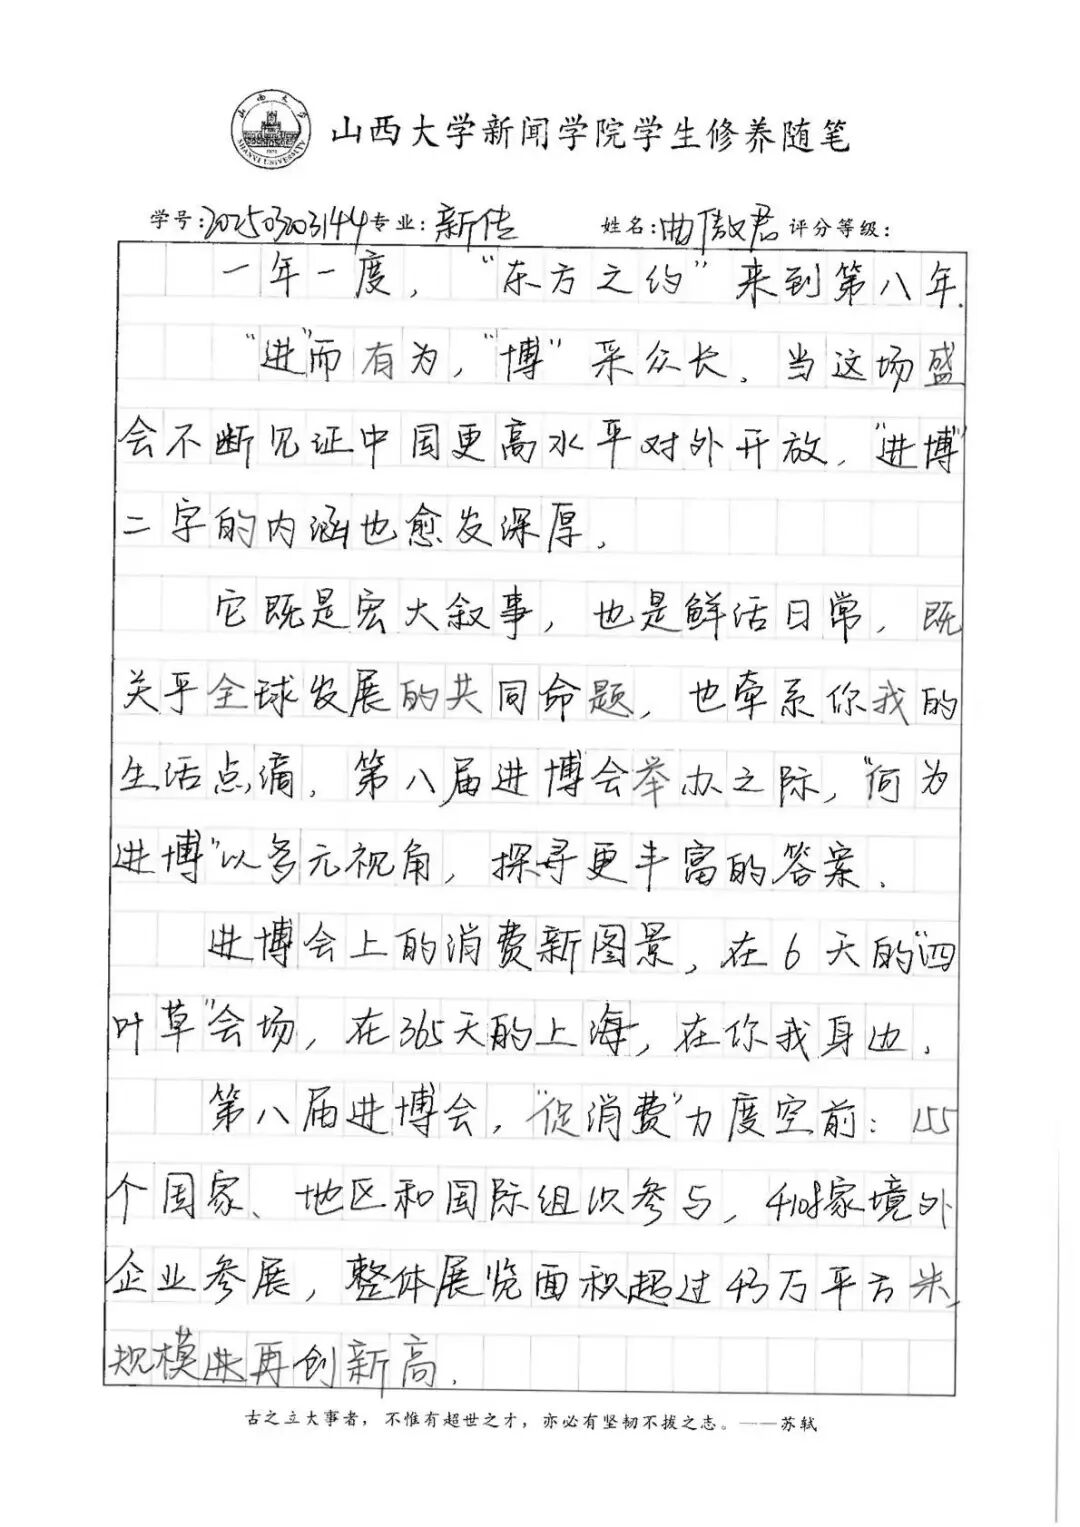 山西大学 SHANXI UNIVERSITY 山西大学新闻学院学生修养随笔
学号:202503203144 专业:新传 姓名:曲傲君 评分等级:
一年一度，“东方之约”来到第八年.
“进”而有为，“博”采众长．当这场盛
会不断见证中国更高水平对外开放，“进博”
二字的内涵也愈发深厚．
它既是宏大叙事，也是鲜活日常，既
关乎全球发展的共同命题，也牵系你我的
生活点滴．第八届进博会举办之际，“何为
进博”以多元视角，探寻更丰富的答案．
进博会上的消费新图景，在6天的“四
叶草”会场，在365天的上海，在你我身边．
第八届进博会，“促消费”力度空前：155
个国家、地区和国际组织参与，4108家境外
企业参展，整体展览面积超过43万平方米，
规模进再创新高．
古之立大事者，不惟有超世之才，亦必有坚韧不拔之志。——苏轼